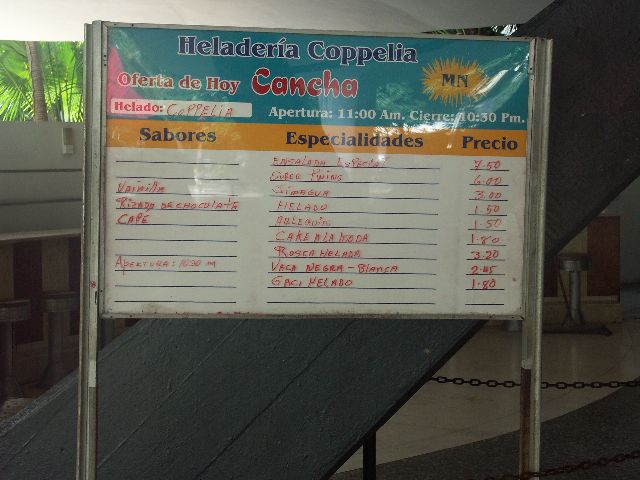 Heladería Coppelia
Oferta de Hoy Cancha MN
Helado: COPPELIA Apertura: 11:00 Am. Cierre: 10:30 Pm.
Sabores Especialidades Precio
ENSALADA ESPECIAL 7.50
SUPER 6.00
Vainilla JIMAGUA 3.00
RIZADO DE CHOCOLATE HELADO 1.50
CAFÉ ARLEQUIN 1.50
CAKE A LA MODA 1.80
ROSCA HELADA 3.20
APERTURA: 10:30 AM VACA NEGRA - BLANCA 2.45
HELADO 1.80